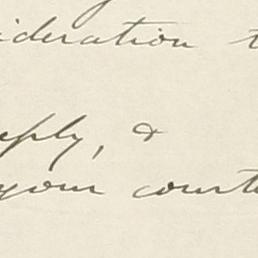 ideration t
eply, &
your courte